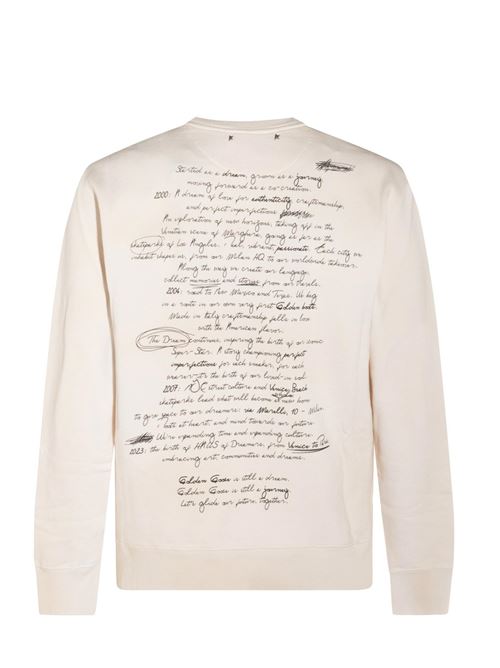 Started as a dream, grown as a journey
moving forward as a co-creation.
2000: A dream of love for authenticity craftsmanship,
and perfect imperfections
An exploration of new horizons, taking off in the
Venetian scene of Marghera, going as far as the
skateparks of Los Angeles, real, vibrant, passionate. Each city we
inhabit shapes us, from our Milan HQ to our worldwide takeover.
Along the way we create our language,
collect memories and stories from our travels.
2006: road to New Mexico and Texas. We beg
in a route in our own very first Golden boots.
Made in Italy craftsmanship falls in love
with the American flavor.
The Dream continues, inspiring the birth of our iconic
Super-Star. A story championing perfect
imperfections for each sneaker, for each
wearer: the birth of our lived-in soul
2007: street culture and Venice Beach
skateparks lead what will become a new born
to give space to our dreamers: via Morello, 10 - Milan.
boots at heart, and mind towards our future
We're expanding time and expanding culture.
2023: the birth of HAUS of Dreamers, from Venice to
embracing art, communities and dreams.
Golden Goose is still a dream.
Golden Goose is still a journey
Let's glide our future, together.